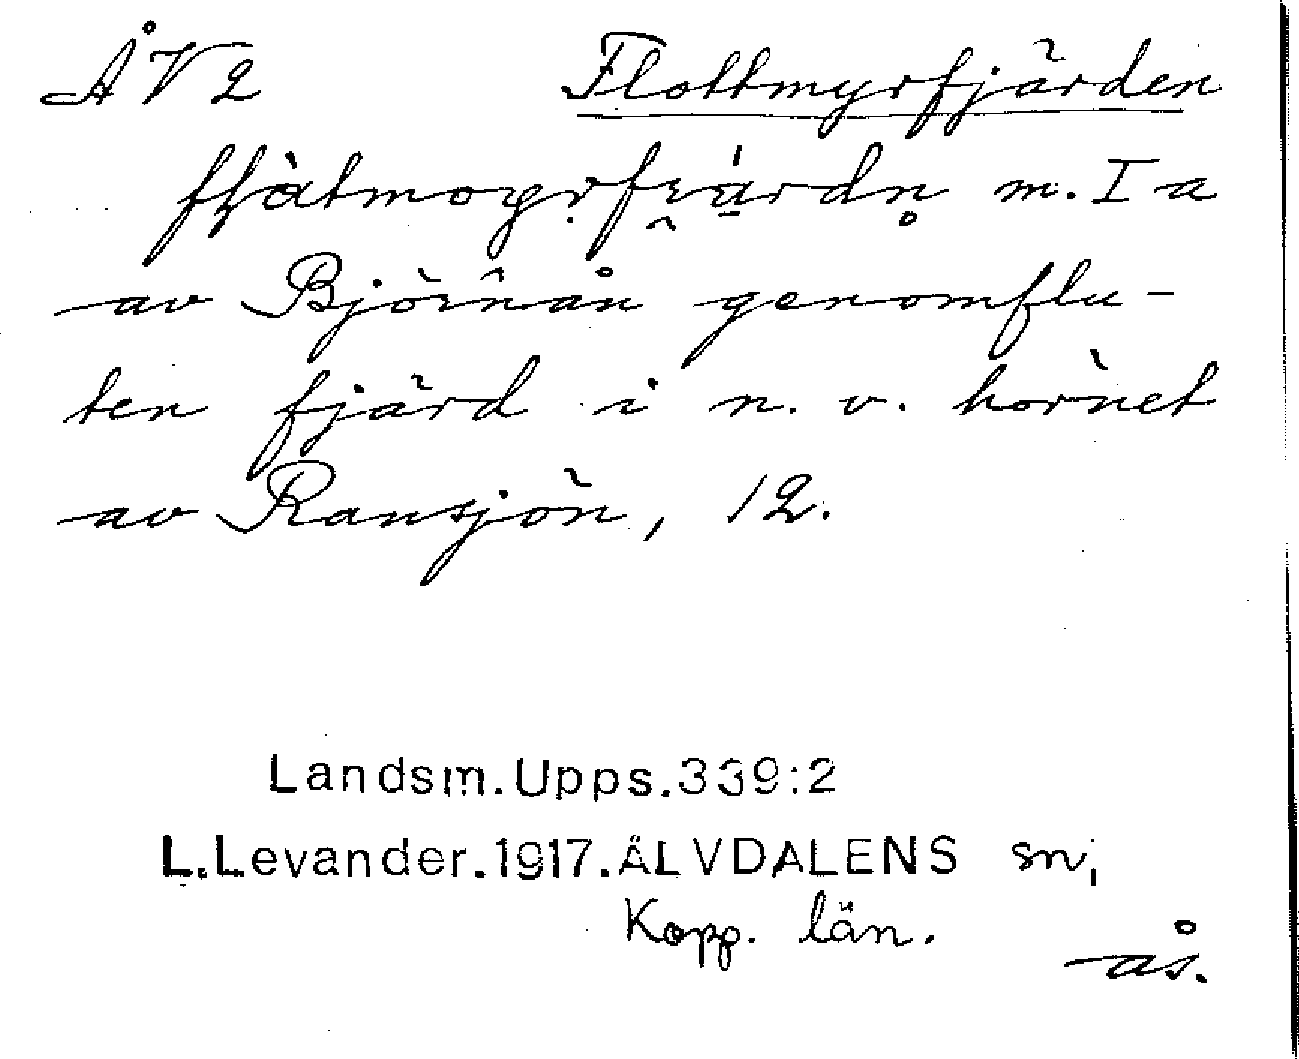 ÅV2 Flottmyrfjärden
m. I a
av Björnån genomflu-
ten fjärd i n. v. hörnet
av Ransjön, 12.
Landsm.Upps.339:2
L.Levander.1917.ÄLVDALENS sn,
Kopp. län.
ås.